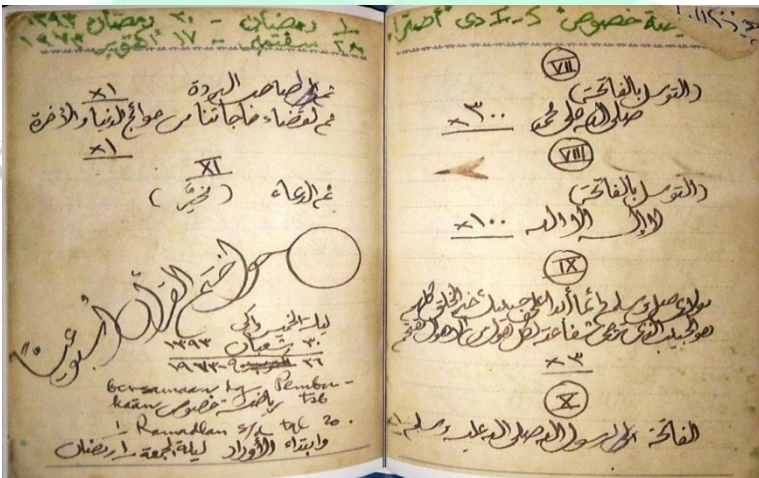 خصوص
VII
(التوسل بالفاتحة)
صلى الله على محمد ٣٠٠×
VIII
(التوسل بالفاتحة)
لا إله إلا الله ١٠٠×
IX
مولاي صل وسلم دائما أبدا على حبيبك خير الخلق كلهم
هو الحبيب الذي ترجى شفاعته لكل هول من الأهوال مقتحم
٣×
X
الفاتحة إلى رسول الله صلى الله عليه وسلم
١ رمضان - ٢٠ رمضان ١٣٩٣
٢٨ سفتمبر - ١٧ اكتوبر ١٩٧٣
ثم إلى صاحب البردة ١×
ثم لقضاء حاجاتنا من حوائج الدنيا والأخرة
١×
XI
ثم الدعاء ( )
ختم القرأن أسبوعيا
ليلة الخميس
٣٠ شعبان ١٣٩٣
٢٦ - ٩ - ١٩٧٣
bersamaan dg Pembu-
kaan رياضة خصوص tsb
1 Ramadlan s/d tgl 20.
وابتداء الأوراد ليلة الجمعة ١ رمضان